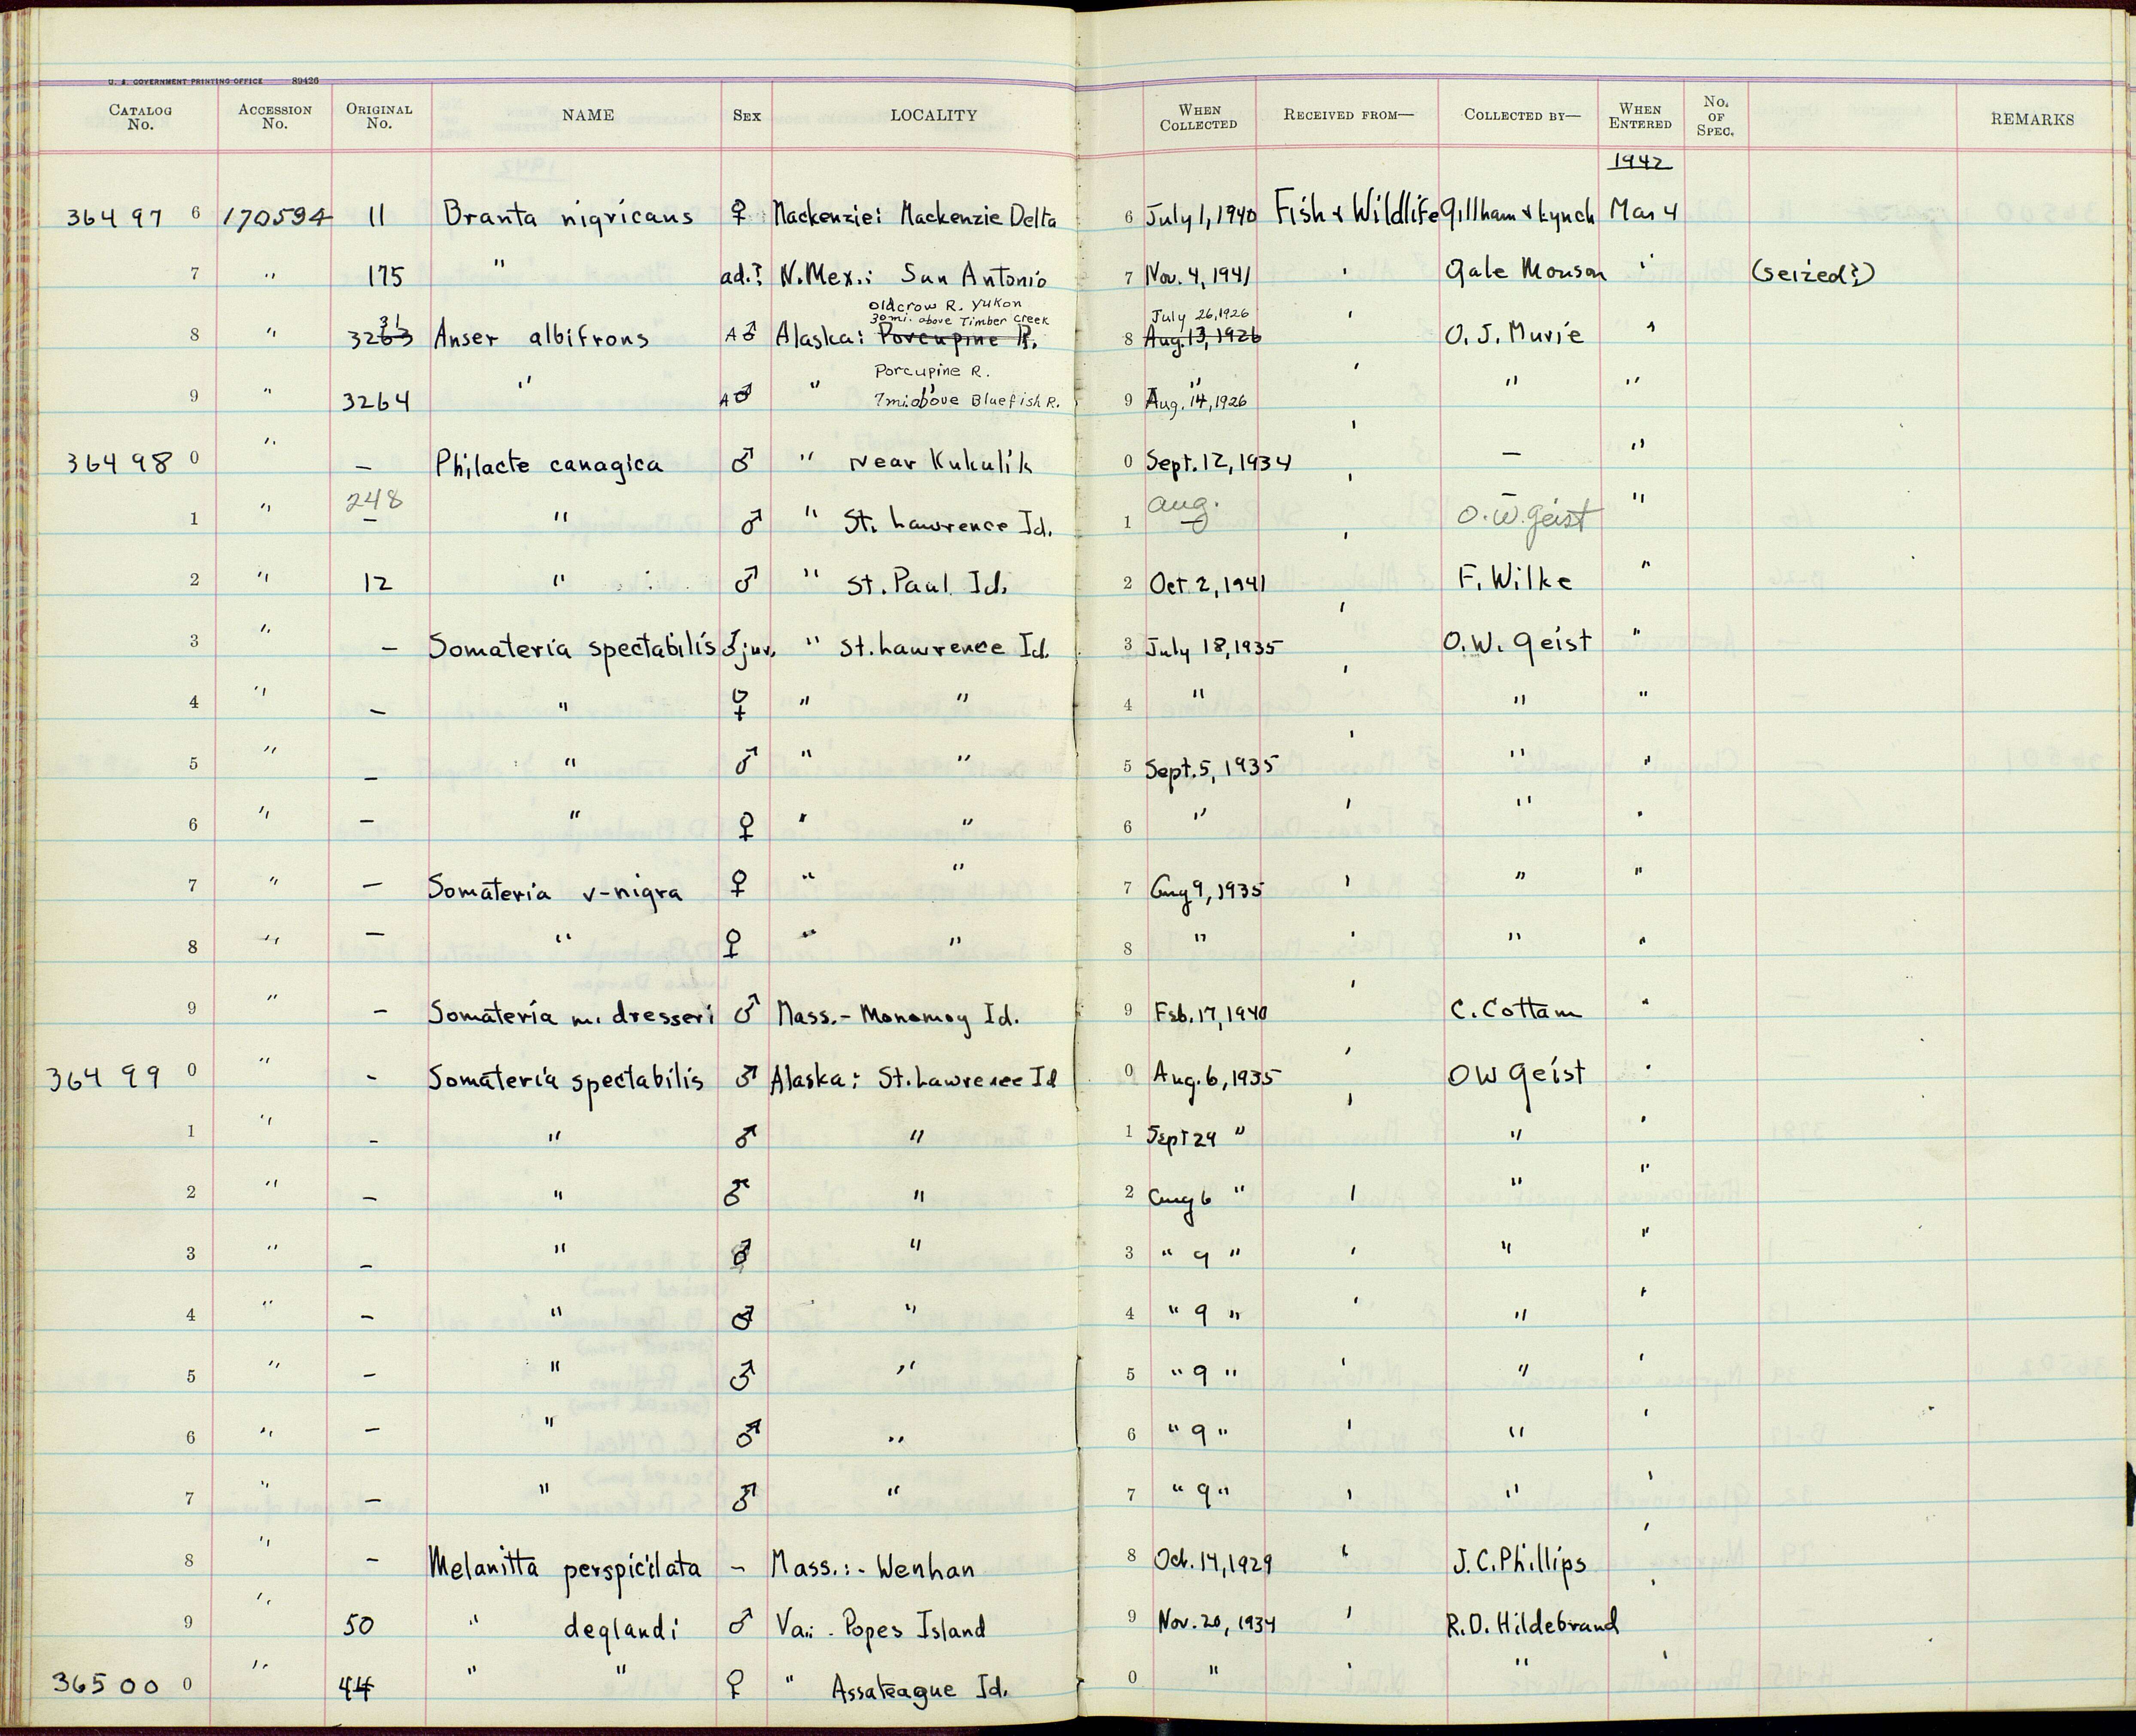 U. S. GOVERNMENT PRINTING OFFICE 89426
CATALOG No. ACCESSION No. ORIGINAL No. NAME SEX LOCALITY WHEN COLLECTED RECEIVED FROM— COLLECTED BY— WHEN ENTERED No. OF SPEC. REMARKS
1942
36497 6 170594 11 Branta nigricans ♀ Mackenzie: Mackenzie Delta 6 July 1, 1940 Fish & Wildlife Gillham & Lynch Mar 4
7 " 175 " ad.? N.Mex.: San Antonio 7 Nov. 4, 1941 ' Gale Monson " (seized?)
Oldcrow R. Yukon
31 30 mi. above Timber Creek July 26, 1926
8 " 3263 Anser albifrons A♂ Alaska: Porcupine R. 8 Aug. 13, 1926 ' O. J. Murie "
Porcupine R.
9 " 3264 " A♂ " " 7 mi. above Bluefish R. 9 " Aug. 14, 1926 ' " "
36498 0 " — Philacte canagica ♂ " Near Kukulik 0 Sept. 12, 1934 ' — "
1 " 248 — " ♂ " St. Lawrence Id. 1 Aug. — ' — O.W. Geist "
2 " 12 " ♂ " St. Paul Id. 2 Oct 2, 1941 ' F. Wilke "
3 " — Somateria spectabilis ♂ juv. " St. Lawrence Id. 3 July 18, 1935 ' O.W. Geist "
4 " — " ♀ " " 4 " ' " "
5 " — " ♂ " " 5 Sept. 5, 1935 ' " "
6 " — " ♀ " " 6 " ' " "
7 " — Somateria v-nigra ♀ " " 7 Aug 9, 1935 ' " "
8 " — " ♀ " " 8 " ' " "
9 " — Somateria m. dresseri ♂ Mass.- Monomoy Id. 9 Feb. 17, 1940 ' C. Cottam "
36499 0 " - Somateria spectabilis ♂ Alaska: St. Lawrence Id 0 Aug. 6, 1935 ' OW Geist "
1 " - " ♂ " 1 Sept 29 " ' " "
2 " — " ♂ " 2 Aug 6 " ' " "
3 " — " ♂ " 3 " 9 " ' " "
4 " — " ♂ " 4 " 9 " ' " "
5 " — " ♂ " 5 " 9 " ' " "
6 " — " ♂ " 6 " 9 " ' " "
7 " — " ♂ " 7 " 9 " ' " "
8 " — Melanitta perspicilata - Mass.:- Wenhan 8 Oct. 14, 1929 ' J.C. Phillips "
9 " 50 " deglandi ♂ Va.: - Popes Island 9 Nov. 20, 1934 ' R.D. Hildebrand '
36500 0 " 44 " " ♀ " Assateague Id. 0 " ' " '